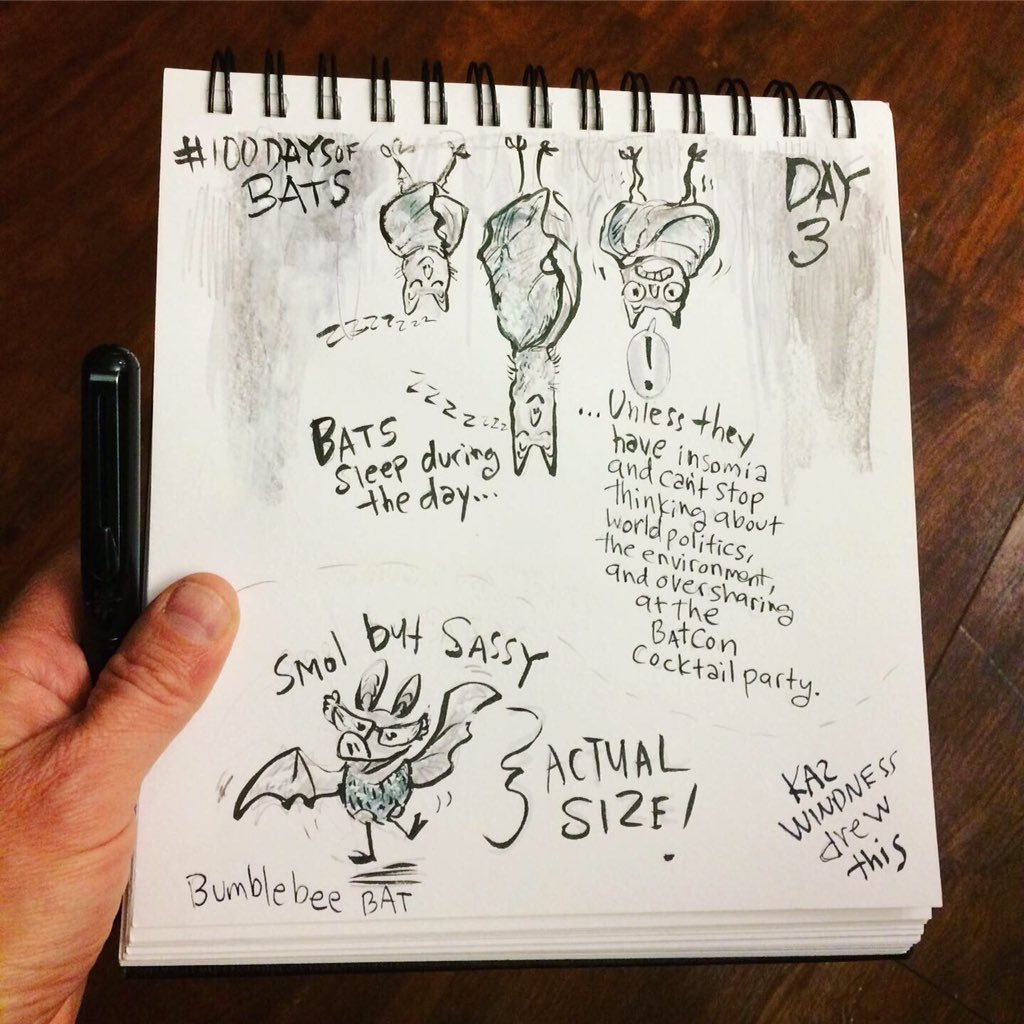 #100DAYSOF
BATS
DAY
3
ZZZZZZZ
!
ZZZZZZZZ
BATS
sleep during
the day...
...Unless they
have insomia
and can't stop
thinking about
world politics,
the environment,
and oversharing
at the
BATCON
cocktail party.
Smol but SASSY
ACTUAL
SIZE!
Bumblebee BAT
KAZ
WINDNESS
drew
this